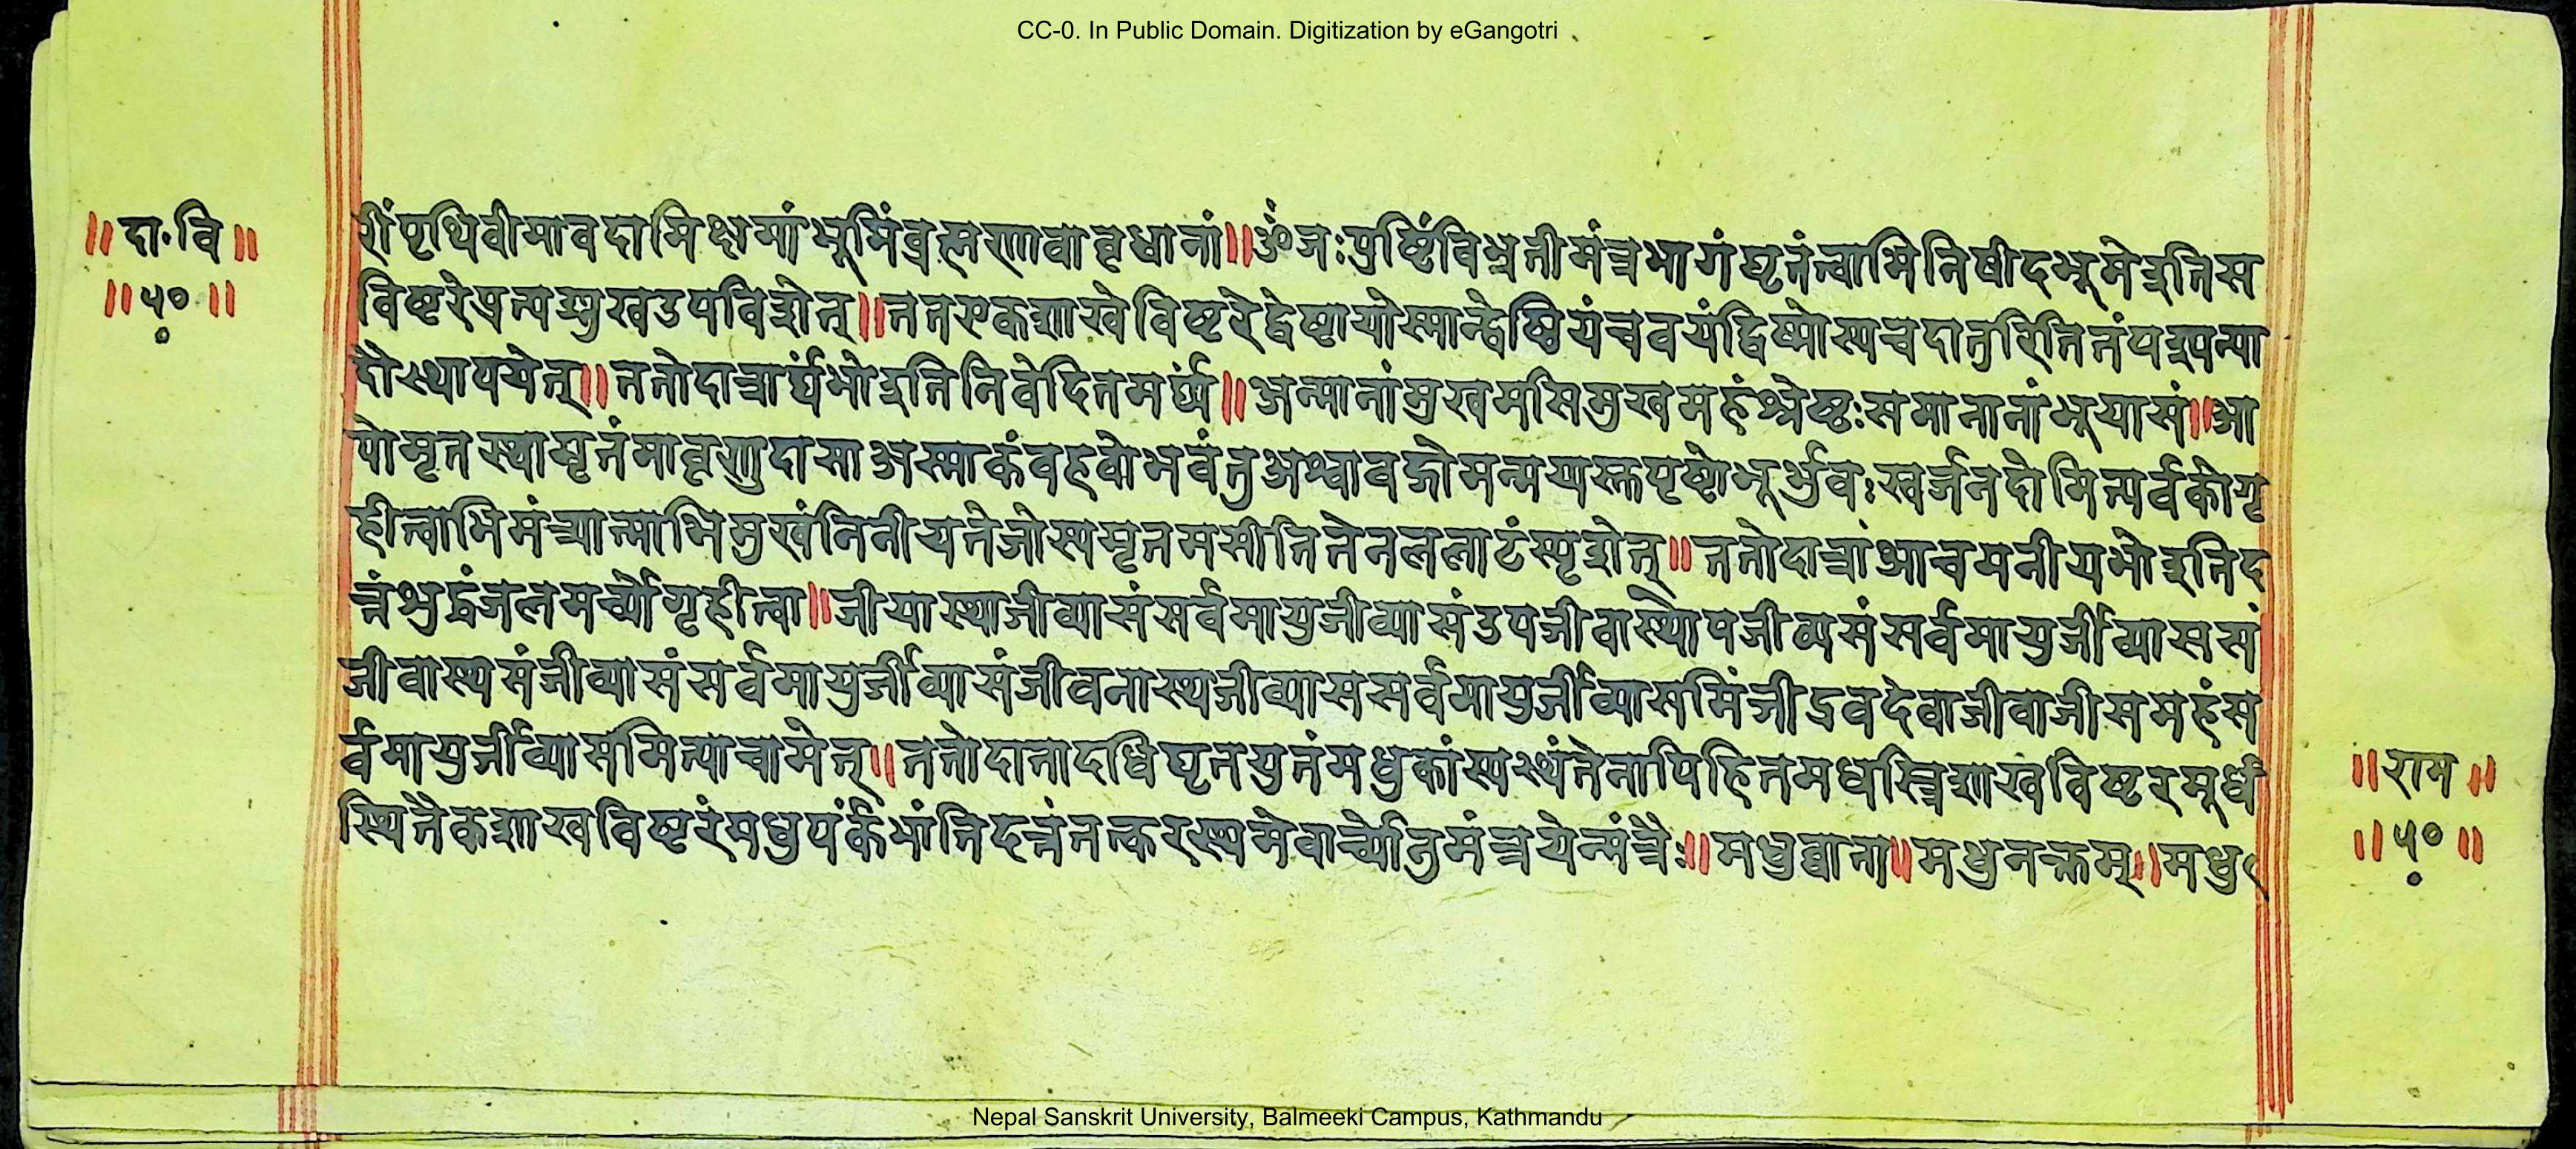 CC-0. In Public Domain. Digitization by eGangotri
॥दा॰वि॥
॥५०॥
रीं पृथिवीमावदामिक्षमांभूमिंब्रह्मणावावृधानां॥ॐर्जःपुष्टिंविभ्रतीमंन्नभागंघृतंत्वाभिनिषीदभूमेइतिस
विष्टरेप्रत्यङ्मुखउपविशेत्॥ततएकशाखेविष्टरेद्वेष्टायोस्मान्द्वेष्ठियंचवयंद्विष्मोस्यचदातुरितितंपद्रपत्या
दौस्थापयेत्॥ततोदात्रार्घ्यंभोइतिनिवेदितमर्घ्यं॥अन्मानांमुखमसिमुखमहंश्रेष्टःसमानानांभूयासं॥आ
पोमृतस्थामृतंमावृणुदासाअस्माकंवहवोभवंतुअश्वावद्गोमन्मयास्क्तपृष्टोभूर्भुवःस्वर्जनदोमित्यर्वकोगृ
हीत्वाभिमंत्र्यात्माभिमुखंनिनीयतेजोस्यमृतमसीतितेनललाटंस्पृशेत्॥ततोदात्रांआचमनीयभोइतिद
त्तंभुद्रंजलमर्च्योगृहीत्वा॥जीयास्थाजीव्यासंसर्वमायुजीव्यासंउपजीवास्थोपजीव्यसंसर्वमायुर्जीव्याससं
जीवास्थसंजीव्यासंसर्वमायुर्जीव्यासंजीवनास्थजीव्याससर्वमायुर्जीव्यासमिंजीद्रवदेवाजीवाजीसमहंस
र्वमायुर्जीव्यासमित्याचामेत्॥ततोदातादधिघृतयुतंमधुकांस्यस्थंतेनापिहितमधस्त्रिशाखविष्टरमूर्ध्वं
स्थितैकशाखविष्टरंमधुपर्कंभांतिदत्तंतत्करस्थमेवार्च्योतुमंत्रयेन्मंत्रैः॥मधुव्वाता॥मधुनक्तम्॥मधु
॥राम॥
॥५०॥
Nepal Sanskrit University, Balmeeki Campus, Kathmandu